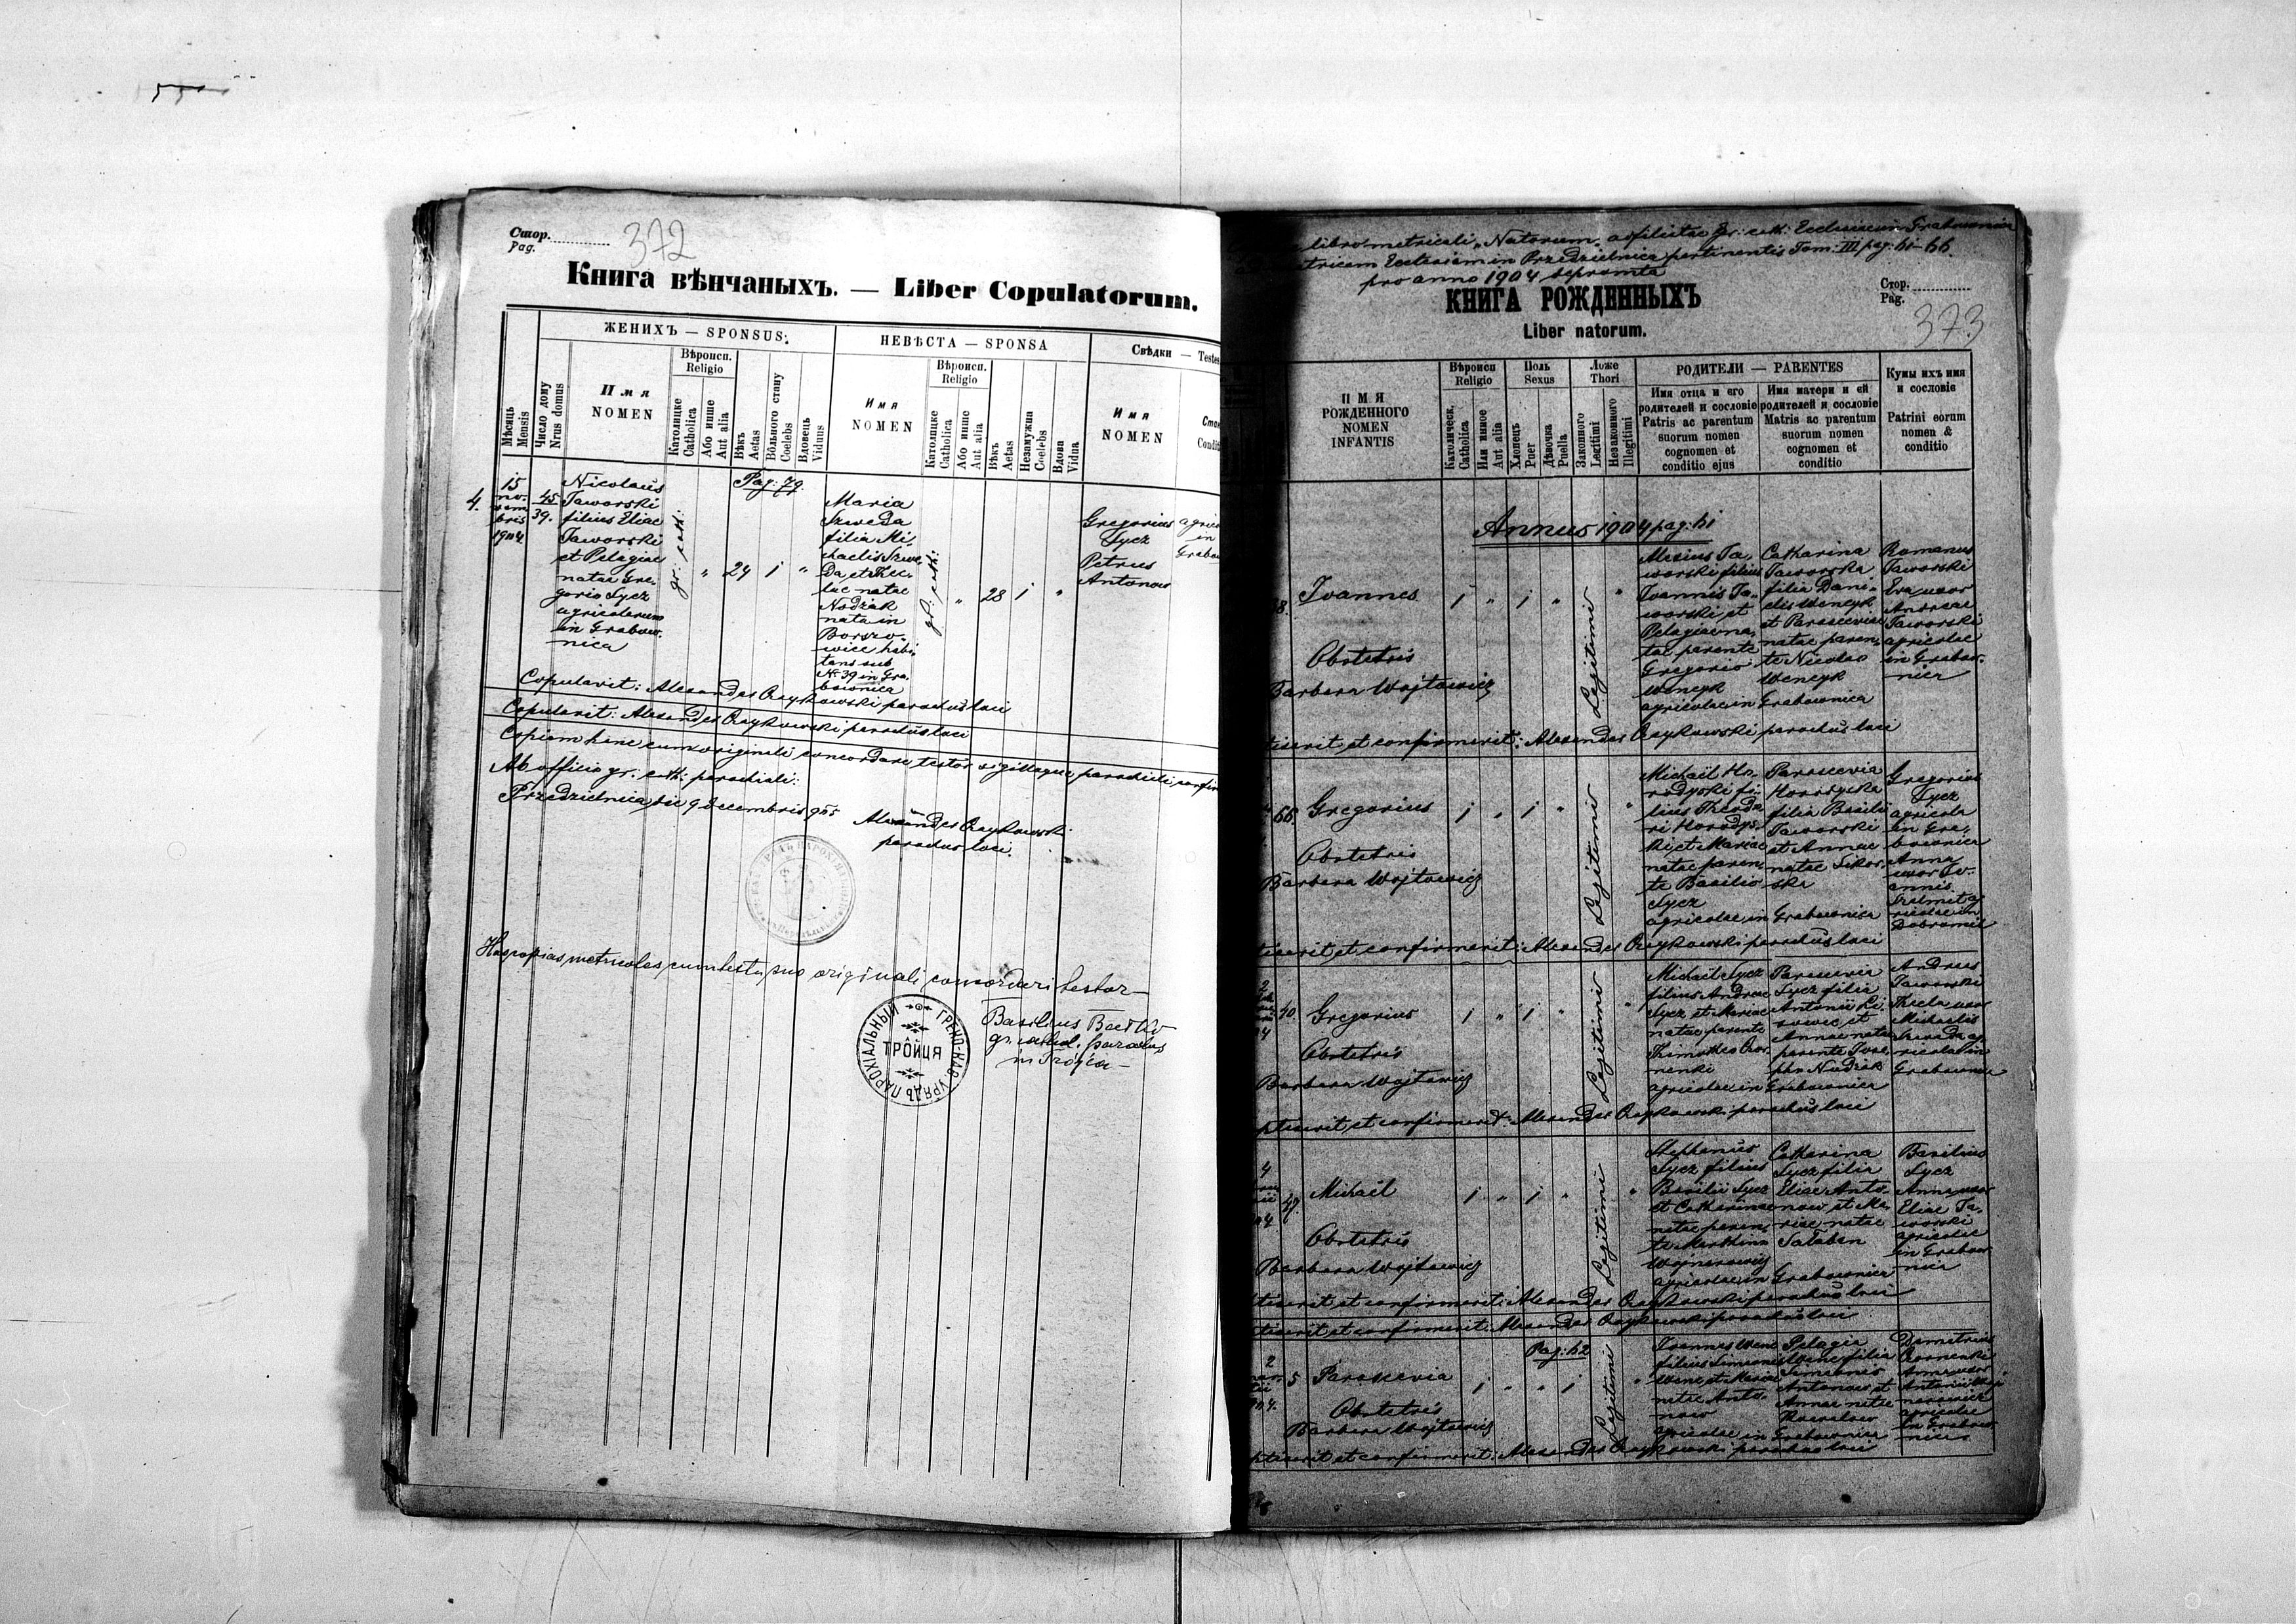 Стор.
Pag.
372
Книга вѣнчаныхъ. — Liber Copulatorum.
Мѣсяць
Mensis
Число дому
Nrus domus
ЖЕНИХЪ — SPONSUS.
Имя
NOMEN
Вѣроисп.
Religio
Католицке
Catholica
Або инше
Aut alia
Вѣкъ
Aetas
Вольного стану
Coelebs
Вдовець
Viduus
НЕВѢСТА — SPONSA
Имя
NOMEN
Вѣроисп.
Religio
Католицке
Catholica
Або инше
Aut alia
Вѣкъ
Aetas
Незамужна
Coelebs
Вдова
Vidua
Свѣдки — Testes
Имя
NOMEN
Pag: 79.
4.
15
no-
vem
bris
1904
45
39.
Nicolaus
Jaworski
filius Eliae
Jaworski
et Pelagiae
natae Gre-
gorio Lycz
agricolarum
in Grabow-
nica
gr: cath:
"
24
1
"
Maria
Szweda
filia Mi-
chaelis Szwe-
da et Thec-
lae natae
Nodżak
nata in
Borszo-
wice habi-
tans sub
Nº 39 in Gra-
bownica
gr: cath:
"
28
1
"
Gregorius
Lycz
Petrus
Antonow
agrico
in
Grabow
Copulavit: Alexander Czaykowski parochus loci
Copulavit: Alexander Czaykowski parochus loci
Copiam hanc cum originali concordare testor sigilloque parochiali confir
Ab officio gr. cath: parochiali:
Przedzielnica die 9 decembris 905
Alexander Czaykowski
parochus loci.
Has copias metricales cum testu suo originali concordari testor
Basilius
gr. cathol. parochus
in Trójca
ГРЕКО-КАѲ. УРЯДЪ ПАРОХІАЛЬНЫЙ
ТРОЙЦЯ
libro metricali "Natorum" adfilistae gr: cath: Ecclesiae in Grabownica
matricem Ecclesiam in Przedzielnica pertinentis Tom: III pag: 61-66.
pro anno 1904 depromta
КНИГА РОЖДЕННЫХЪ
Liber natorum.
Стор.
Pag.
373
ИМЯ
РОЖДЕННОГО
NOMEN
INFANTIS
Вѣроисп
Religio
Католическ.
Catholica
Или иное
Aut alia
Поль
Sexus
Хлопець
Puer
Дѣвочка
Puella
Ложе
Thori
Законного
Legitimi
Незаконного
Illegitimi
РОДИТЕЛИ — PARENTES
Имя отца и его
родителей и сословіе
Patris ac parentum
suorum nomen
cognomen et
conditio ejus
Имя матери и ей
родителей и сословіе
Matris ac parentum
suorum nomen
cognomen et
conditio
Кумы ихъ имя
и сословіе
Patrini eorum
nomen &
conditio
Annus 1904 pag: 61
8.
Joannes
Obstetris
Barbara Wojtowicz
1 " 1 "
Legitimi
"
Alexius Ja-
worski filius
Joannis Ja-
worski et
Pelagiae na-
tae parente
Gregorio
Wencyk
agricolae in Grabownica
Catharina
Jaworska
filia Dani-
elis Wencyk
et Parasceviae
natae paren-
te Nicolao
Wencyk
Romanus
Jaworski
Eva uxor
Andreae
Jaworski
agricolae
in Grabow-
nica
tisavit et confirmavit: Alexander Czaykowski parochus loci
66.
Gregorius
Obstetris
Barbara Wojtowicz
1 " 1 "
Legitimi
"
Michaël Ho-
rodyski fi-
lius Theodo
ri Horodys-
ki et Mariae
natae paren-
te Basilio
Lycz
agricolae in Grabownica
Parascevia
Horodyska
filia Basilii
Jaworski
et Annae
natae Sikor-
ska
Gregorius
Lycz
agricola
in Gra-
bownica
Anna
uxor Jo-
annis
in
Dobromil
tisavit et confirmavit: Alexander Czaykowski parochus loci
10
Gregorius
Obstetris
Barbara Wojtowicz
1 " 1 "
Legitimi
"
Michaël Lycz
filius Andreae
Lycz et Mariae
natae parente
Thimotheo Czor-
nenki
agricolae in Grabownica
Parascevia
Lycz filia
Antonii Li-
sowiec et
Annae natae
parente Jose-
pho Nodżak
Andreas
Jaworski
Thecla uxor
Michaelis
Szweda ag-
ricolae in
Grabownica
ptisavit et confirmavit: Alexander Czaykowski parochus loci
4
27.
Michaël
Obstetris
Barbara Wojtowicz
1 " 1 "
Legitimi
"
Stephanus
Lycz filius
Basilii Lycz
et Catharinae
natae paren-
te Martino
Wojnarowicz
agricolae in Grabownica
Catharina
Lycz filia
Eliae Anto-
now et Ma-
riae natae
Salaban
Basilius
Lycz
Anna uxor
Eliae Ja-
worski
agricolae
in Grabow-
nica
tisavit et confirmavit: Alexander Czaykowski parochus loci
tisavit et confirmavit: Alexander Czaykowski parochus loci
Pag: 62
2
5
Paraskevia
Obstetris
Barbara Wojtowicz
1 " " 1
Legitimi
"
Joannes Wenc
filius Simeonis
Wenc et Mariae
natae Anto-
now
agricolae in Grabownica
Pelagia
Wenc filia
Simeonis
Antonow et
Annae natae
Demetrius
Czornenki
Anna uxor
Antonii Woj-
narowicz
agricolae
in Grabow-
nica
ptisavit et confirmavit: Alexander Czaykowski parochus loci